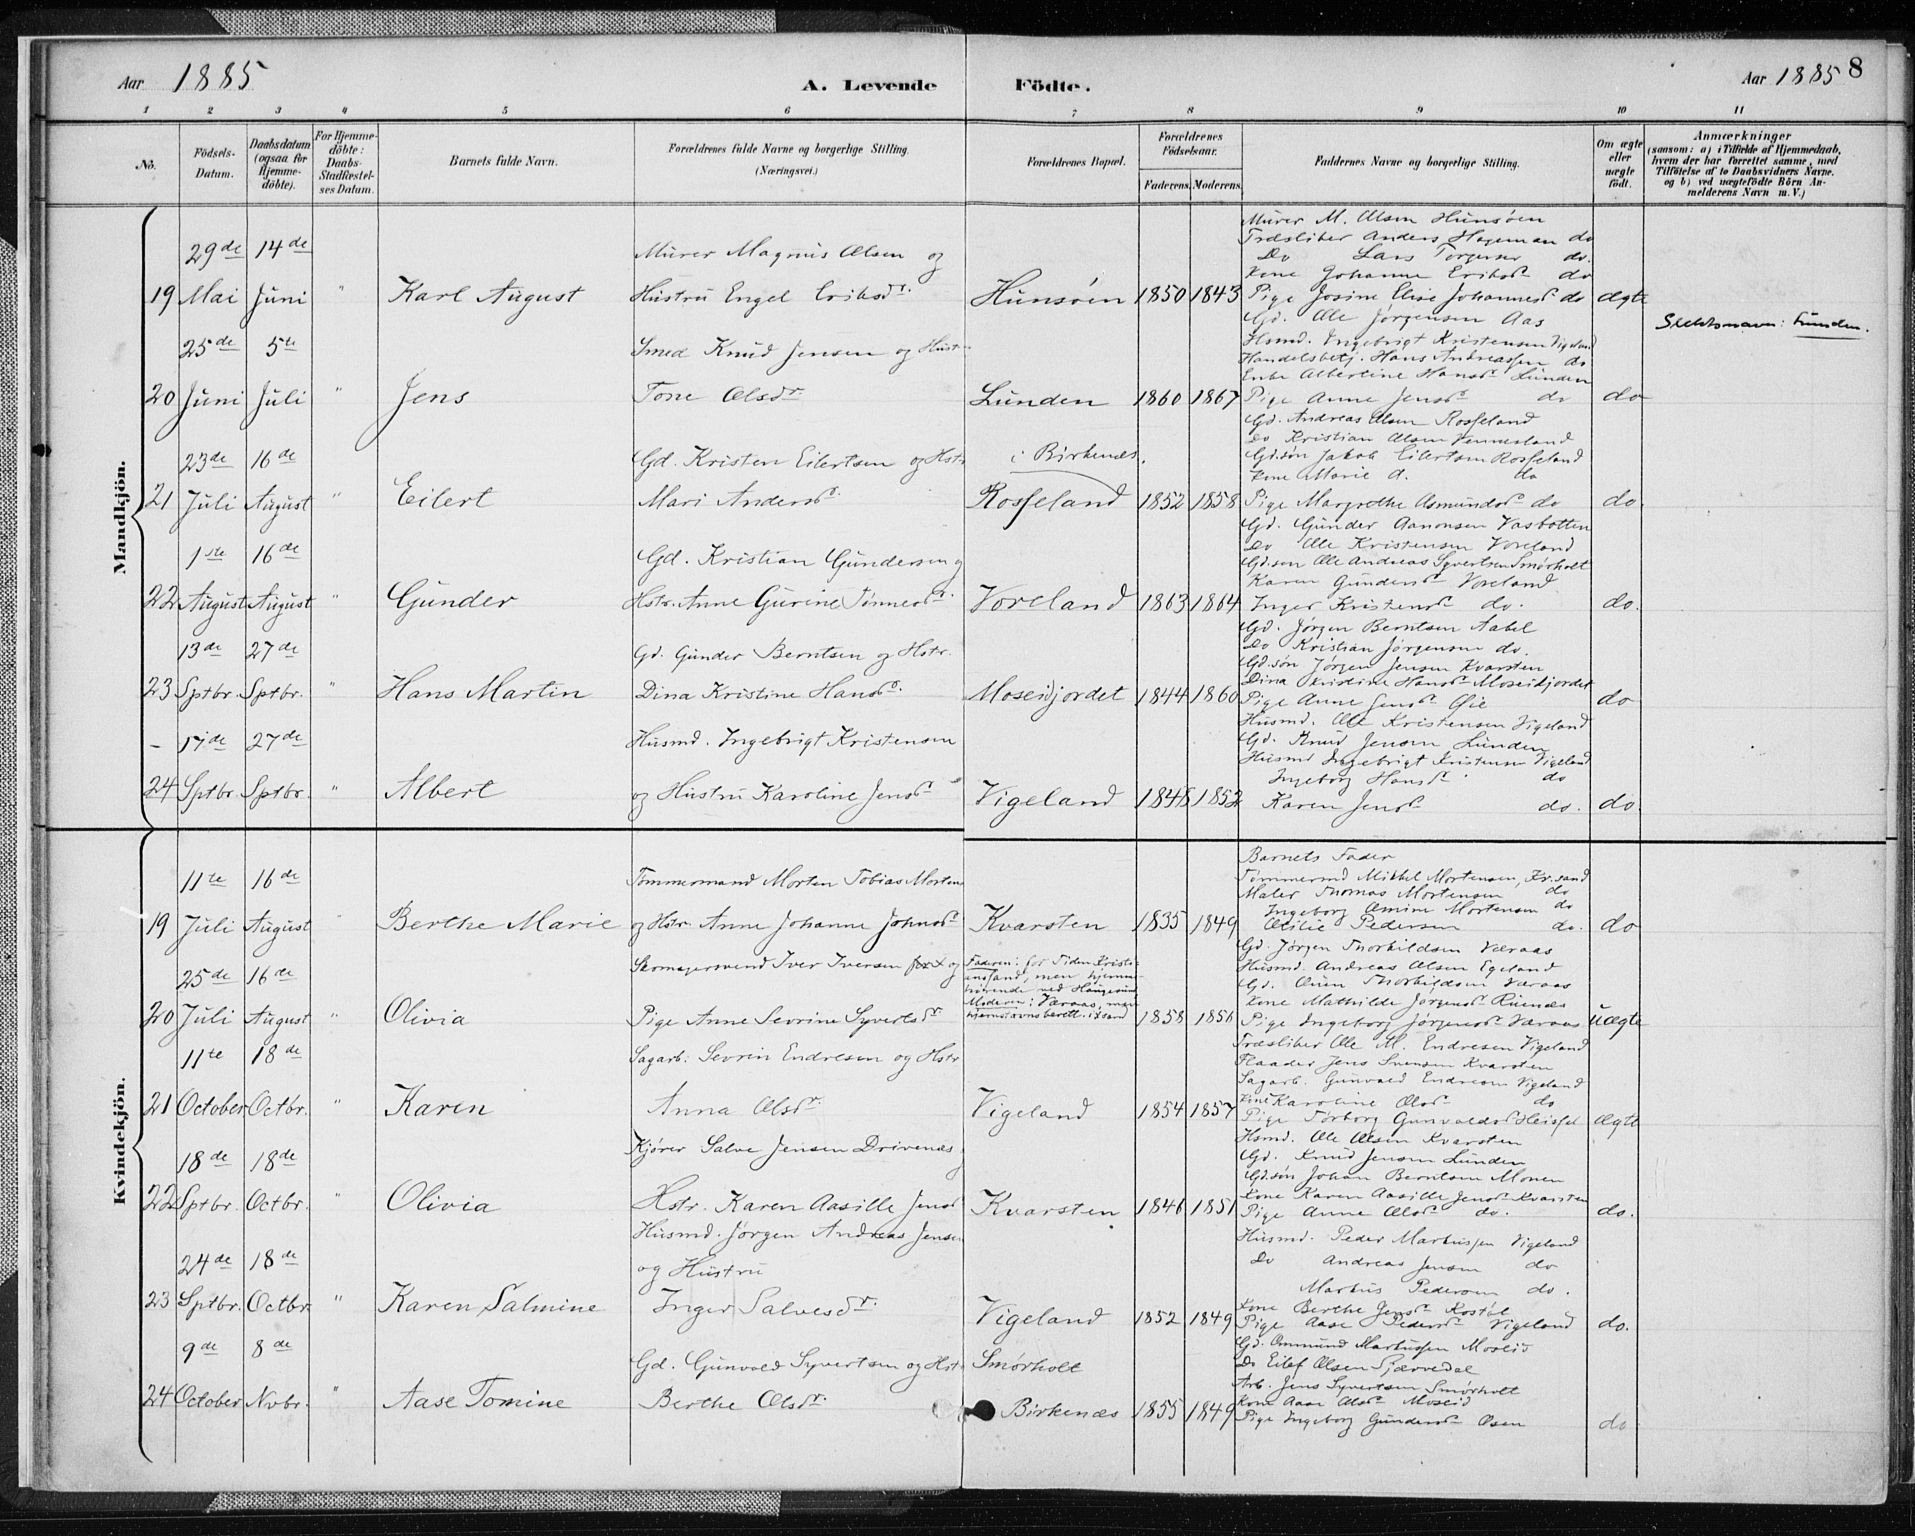 Aar 1885
A. Levende Födte.
Aar 1885 8
1 2 3 4 5 6 7 8 9 10 11
No.
Födsels-Datum.
Daabsdatum (ogsaa for Hjemme-döbte).
For Hjemme-döbte: Daabs-Stadfæstel-ses Datum.
Barnets fulde Navn.
Forældrenes fulde Navne og borgerlige Stilling. (Næringsvei.)
Forældrenes Bopæl.
Forældrenes Födselsaar.
Faderens. Moderens.
Faddernes Navne og borgerlige Stilling.
Om ægte eller uægte födt.
Anmærkninger
(saasom: a) i Tilfælde af Hjemmedaab, hvem der har forrettet samme, med Tilföielse af to Daabsvidners Navne. og b) ved uægtefödte Börn An-melderens Navn m. V.)
Mandkjön.
19 29de Mai 14de Juni " Karl August
Murer Magnus Olsen og
Hustru Engel Eriksdr.
Hunsøen 1850 1843
Murer M. Olsen Hunsøen
Træsliber Anders Hageman do
Do Lars Torgersen do.
Kone Johanne Eriksdr do
Pige Josine Elise Johannesdr do
ægte
20 25de Juni 5te Juli " Jens
Smed Knud Jensen og Hustr
Tone Olsdr.
Lunden 1860 1867
Gd. Ole Jørgensen Aas
Hsmd. Ingebrigt Kristensen Vigeland
Handelsbetj. Hans Andreassen do
Enke Albertine Hansdr Lunden
Pige Anne Jensdr do
do
Slektsnavn: Lunden.
21 23de Juli 16de August " Eilert
Gd. Kristen Eilertsen og Hstr
Mari Andersdr
i Birkenæs.
Rosseland 1852 1858
Gd. Andreas Olsen Rosseland
Do Kristian Olsen Vennesland
Gd.søn Jakob Eilertsen Rosseland
Kone Marie A. do
Pige Margrethe Asmundsdr do
do.
22 1ste August 16de August " Gunder
Gd. Kristian Gundersen og
Hstr. Anne Gurine Tønnesdr.
Voreland 1863 1864
Gd. Gunder Aanonsen Vasbotten
Do Ole Kristensen Voreland
Gd.søn Ole Andreas Syvertsen Smørholt
Karen Gundersdr Voreland
Inger Kristensdr do.
do.
23 13de Sptbr. 27de Sptbr. " Hans Martin
Gd. Gunder Berntsen og Hstr.
Dina Kristine Hansdr.
Moseidjordet 1844 1860
Gd. Jørgen Berntsen Aabel
Do Kristian Jørgensen do.
Gd.søn Jørgen Jensen Kvarsten
Dina Kristine Hansdr Moseidjordet
Pige Anne Jensdr Øie
do
24 17de Sptbr. 27de Sptbr. " Albert
Husmd. Ingebrigt Kristensen
og Hustru Karoline Jensdr
Vigeland 1848 1852
Husmd. Ole Kristensen Vigeland
Gd. Knud Jensen Lunden
Husmd Ingebrigt Kristensen Vigeland
Ingeborg Hansdr do
Karen Jensdr do.
do.
Kvindekjön.
19 11te Juli 16de August " Berthe Marie
Tømmermand Morten Tobias Mortens
og Hstr. Anne Johanne Johnsdr
Kvarsten 1835 1849
Barnets Fader
Tømmermd Mikkel Mortensen, Kr.sand
Maler Thomas Mortensen do
Ingeborg Omine Mortensen do
Cecilie Pedersen do.
do
20 25de Juli 16de August " Olivia
Skomagersvend Iver Iversen og
Pige Anne Sevrine Syvertsdr
Faderen: for Tiden Kristi-
ansand, men hjemme-
hørende ved Haugesund
Moderen: Væraas, men
hjemstavnsberett. i Xsand
1858 1856
Gd. Jørgen Thorkildsen Væraas
Husmd. Andreas Olsen Egeland
Gd. Ouen Thorkildsen Væraas
Kone Mathilde Jørgensdr Ruenæs
Pige Ingeborg Jørgensdr Væraas
Uægte
21 11te October 18de Octbr. " Karen
Sagarb: Sevrin Endresen og Hstr
Anna Olsdr.
Vigeland 1854 1857
Træsliber Ole M. Endresen Vigeland
Flaader Jens Svensen Kvarsten
Sagarb. Gunvald Endresen Vigeland
Kone Karoline Olsdr do
Pige Torborg Gunvaldsdr Heissel
Ægte
22 18de Sptbr. 18de Octbr. " Olivia
Kjører Salve Jensen Drivenæs
Hstr. Karen Aasille Jensdr
Kvarsten 1846 1851
Hsmd. Ole Olsen Kvarsten
Gd. Knud Jensen Lunden
Gd.søn Johan Berntsen Moen
Kone Karen Aasille Jensdr Kvarsten
Pige Anne Olsdr do.
do.
23 24de Sptbr. 18de Octbr. " Karen Salmine
Husmd. Jørgen Andreas Jensen
og Hustru
Inger Salvesdr.
Vigeland 1852 1849
Husmd. Peder Markussen Vigeland
Do Andreas Jensen do
Markus Pedersen do.
Kone Berthe Jensdr Kostøl
Pige Aase Pedersdr Vigeland
do.
24 9de October 8de Nvbr. " Aase Tomine
Gd. Gunvald Syvertsen og Hst
Berthe Olsdr.
Smørholt
Birkenæs 1855 1849
Gd. Ommund Markussen Moseid
Do Eilef Olsen Tjærvedal
Arb. Jens Syvertsen Smørholt
Kone Aase Olsdr Moseid
Pige Ingeborg Gundersdr Osen
do